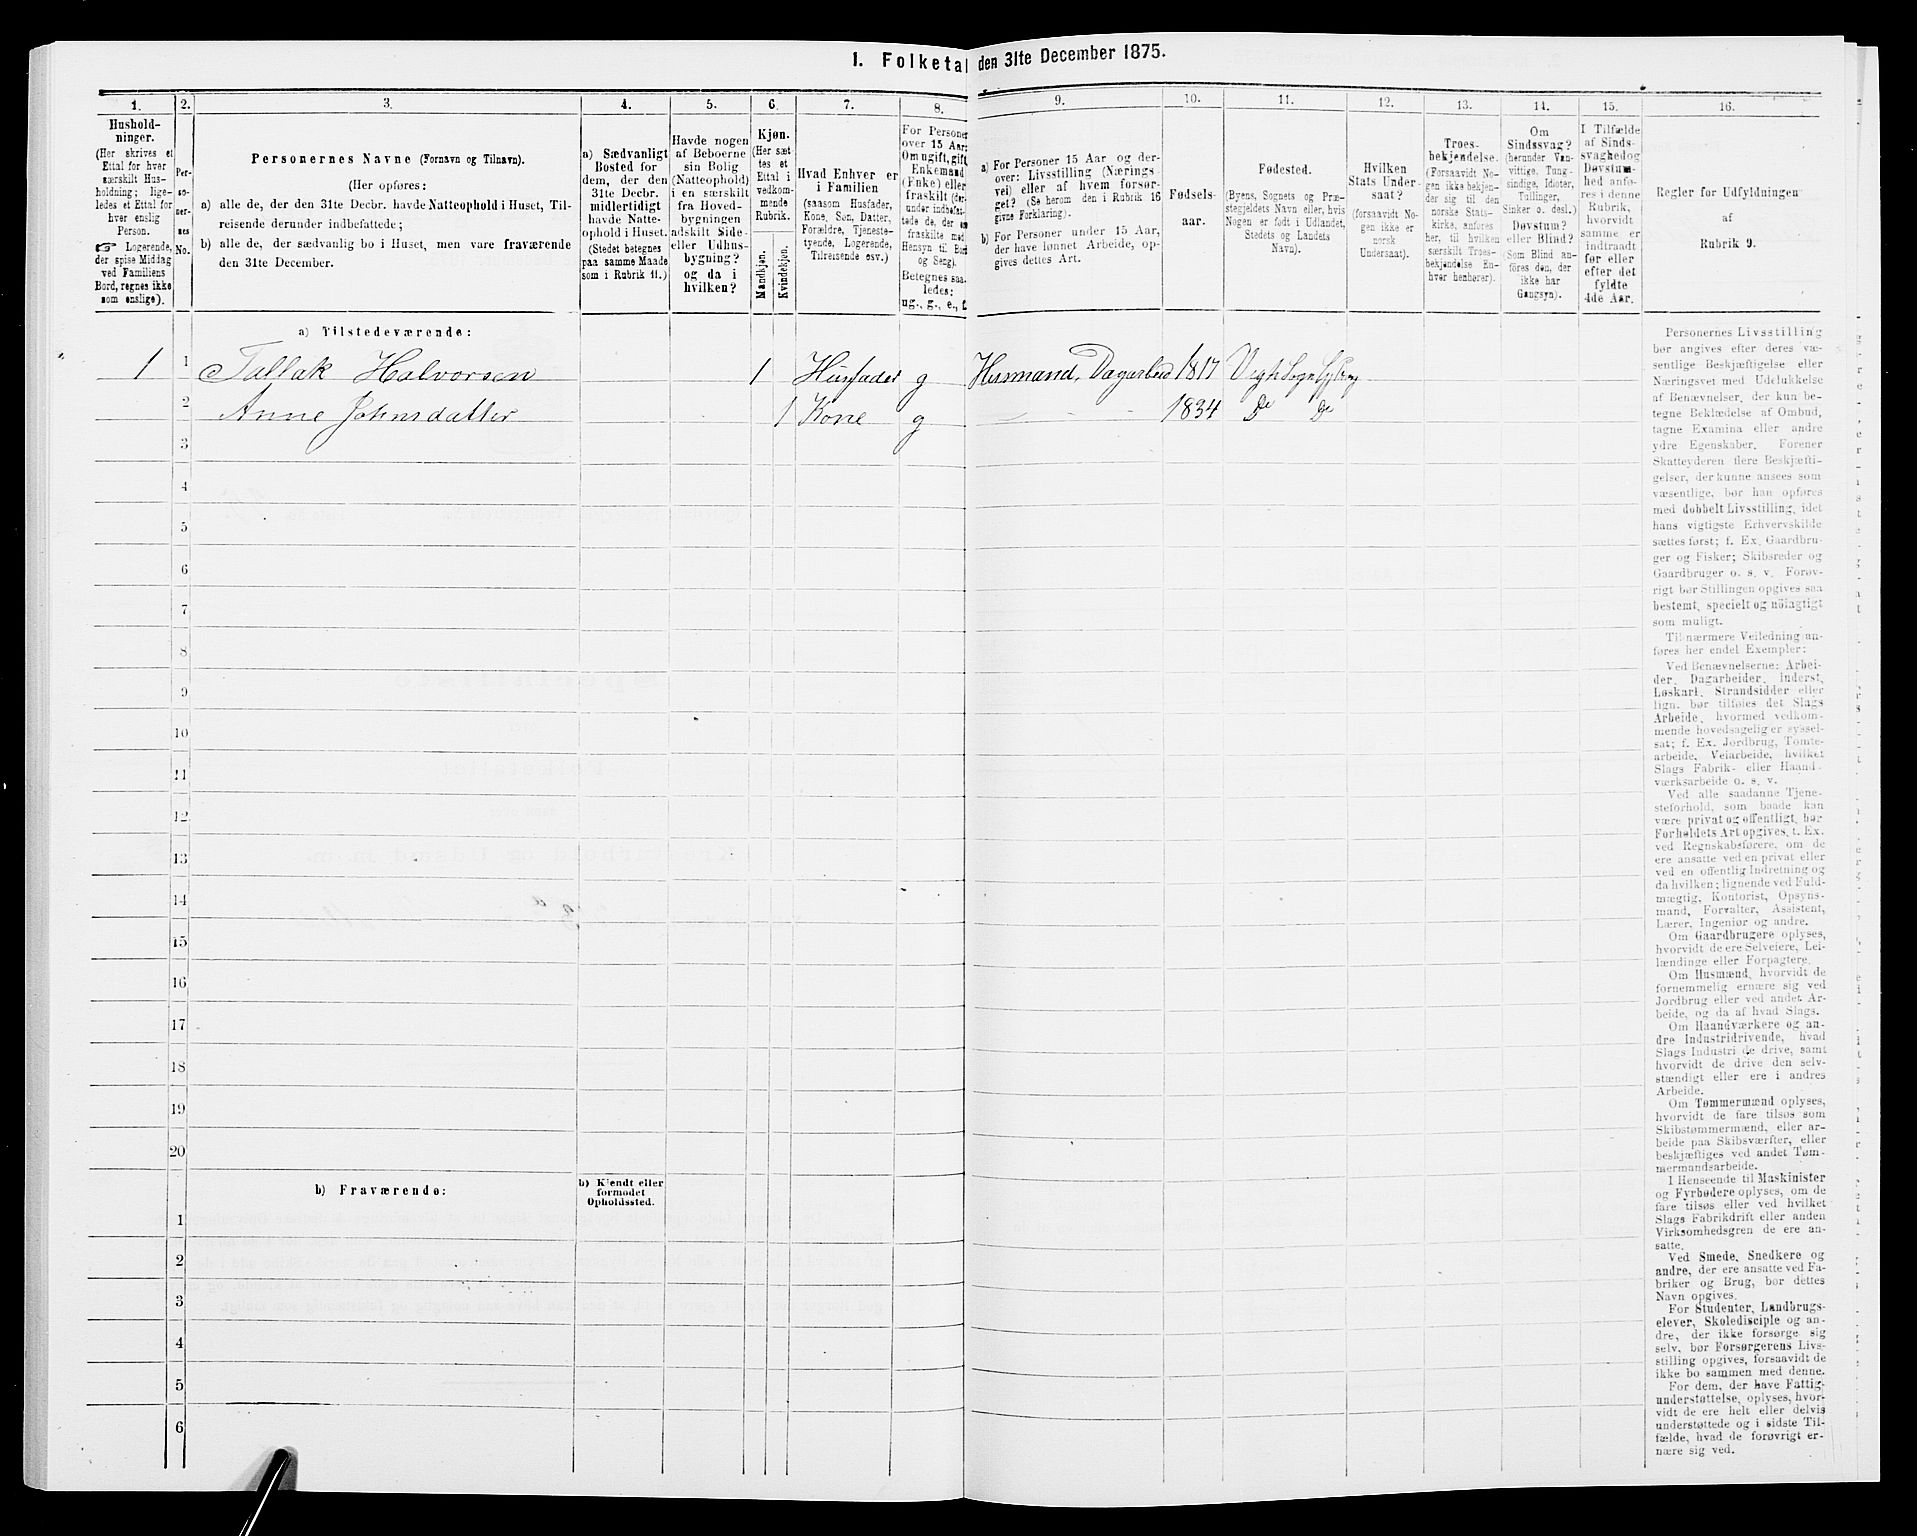 1. Folketal den 31te December 1875.
1.
2.
3.
4.
5.
6.
7.
8.
9.
10.
11.
12.
13.
14.
15.
16.
Hushold-
ninger.
(Her skrives et
Ettal for hver
særskilt Hus-
holdning; lige-
ledes et Ettal for
hver enslig
Person.
☞ Logerende,
der spise Middag
ved Familiens
Bord, regnes ikke
som enslige).
Per-
so-
ner-
nes
No.
Personernes Navne (Fornavn og Tilnavn).
(Her opføres:
a) alle de, der den 31te Decbr. havde Natteophold i Huset, Til-
reisende derunder indbefattede;
b) alle de, der sædvanlig bo i Huset, men vare fraværende
den 31te December.
a) Sædvanligt
Bosted for
dem, der den
31te Decbr.
midlertidigt
havde Natte-
ophold i Huset.
(Stedet betegnes
paa samme Maade
som i Rubrik 11.)
Havde nogen
af Beboerne
sin Bolig
(Natteophold)
i en særskilt
fra Hoved-
bygningen
adskilt Side-
eller Udhus-
bygning?
og da i
hvilken?
Kjøn.
(Her sæt-
tes et
Ettal i
vedkom-
mende
Rubrik.
Mandkjøn.
Kvindekjøn.
Hvad Enhver er
i Familien
(saasom Husfader,
Kone, Søn, Datter,
Forældre, Tjeneste-
tyende, Logerende,
Tilreisende osv.)
For Personer
over 15 Aar:
Om ugift, gift,
Enkemand
(Enke) eller
fraskilt (der-
under indbefat-
tede de, der ere
fraskilte med
Hensyn til Bord
og Seng).
Betegnes saa-
ledes:
ug., g., e., f.
a) For Personer 15 Aar og der-
over: Livsstilling (Nærings-
vei) eller af hvem forsør-
get? (Se herom den i Rubrik 16
givne Forklaring).
b) For Personer under 15 Aar,
der have lønnet Arbeide, op-
gives dettes Art.
Fødsels-
aar.
Fødested.
(Byens, Sognets og Præ-
stegjeldets Navn eller, hvis
Nogen er født i Udlandet,
Stedets og Landets
Navn).
Hvilken
Stats Under-
saat?
(forsaavidt No-
gen ikke er
norsk
Undersaat).
Troes-
bekjendelse.
(Forsaavidt No-
gen ikke bekjen-
der sig til den
norske Stats-
kirke, anføres
her, til hvilken
særskilt Troes-
bekjendelse En-
hver henhører).
Om
Sindssvag?
(herunder Van-
vittige, Tung-
sindige, Idioter,
Tullinger,
Sinker o. desl.)
Døvstum?
eller Blind?
(Som Blind an-
føres den, der
ikke har
Gangsyn).
I Tilfælde
af Sinds-
svaghed og
Døvstum-
hed anfø-
res i denne
Rubrik,
hvorvidt
samme er
indtraadt
før eller
efter det
fyldte
4de Aar.
Regler for Udfyldningen
af
Rubrik 9.
a) Tilstedeværende:
1 1 Tallak Halvorsen 1 Husfader g Husmand, Dagarbeid 1817 Vegh Sogn
2 Anne Johnsdatter 1 Kone g - - - 1834 Do Do
3
4
5
6
7
8
9
10
11
12
13
14
15
16
17
18
19
20
b) Fraværende:
b) Kjendt eller
formodet
Opholdssted.
1
2
3
4
5
6
Personernes Livsstilling
bør angives efter deres væ-
sentlige Beskjæftigelse eller
Næringsvei med Udelukkelse
af Benævnelser, der kun be-
tegne Beklædelse af Ombud,
tagne Examina eller andre
ydre Egenskaber. Forener
Skatteyderen flere Beskjæfti-
gelser, der kunne ansees som
væsentlige, bør han opføres
med dobbelt Livsstilling, idet
hans vigtigste Erhvervskilde
sættes først; f. Ex. Gaardbru-
ger og Fisker; Skibsreder og
Gaardbruger o. s. v. Forøv-
rigt bør Stillingen opgives saa
bestemt, specielt og nöiagtigt
som muligt.
Til nærmere Veiledning an-
føres her endel Exempler:
Ved Benævnelserne: Arbei-
der, Dagarbeider, Inderst,
Løskarl, Strandsidder eller
lign. bør tilføies det Slags
Arbeide, hvormed vedkom-
mende hovedsagelig er syssel-
sat; f. Ex. Jordbrug, Tomte-
arbeide, Veiarbeide, hvilket
Slags Fabrik- eller Haand-
værksarbeide o. s. v.
Ved alle saadanne Tjene-
steforhold, som baade kan
være privat og offentligt, bør
Forholdets Art opgives, t. Ex.
ved Regnskabsførere, om de
ere ansatte ved en privat eller
ved en offentlig Indretning og
da hvilken; lignende ved Fuld-
mægtig, Kontorist, Opsyns-
mand, Forvalter, Assistent,
Lærer, Ingeniør og andre.
Om Gaardbrugere oplyses,
hvorvidt de ere Selveiere, Lei-
lændinge eller Forpagtere.
Om Husmænd, hvorvidt de
fornemmelig ernære sig ved
Jordbrug eller ved andet Ar-
beide, og da af hvad Slags.
Om Haandværkere og an-
dre Industridrivende, hvad
Slags Industri de drive, samt
hvorvidt de drive den selv-
stændigt eller ere i andres
Arbeide.
Om Tømmermænd oplyses,
hvorvidt de fare tilsøs som
Skibstømmermænd, eller ar-
beide paa Skibsværfter, eller
beskjæftiges ved andet Tøm-
mermandsarbeide.
I Henseende til Maskinister
og Fyrbødere oplyses, om de
fare tilsøs eller ved hvilket
Slags Fabrikdrift eller anden
Virksomhedsgren de ere an-
satte.
Ved Smede, Snedkere og
andre, der ere ansatte ved Fa-
briker og Brug, bør dettes
Navn opgives.
For Studenter, Landbrugs-
elever, Skoledisciple og an-
dre, der ikke forsørge sig
selv, bør Forsørgerens Livs-
stilling opgives, forsaavidt de
ikke bo sammen med denne.
For dem, der have Fattig-
understøttelse, oplyses, hvor-
vidt de ere helt eller delvis
understøttede og i sidste Til-
fælde, hvad de forøvrigt er-
nære sig ved.